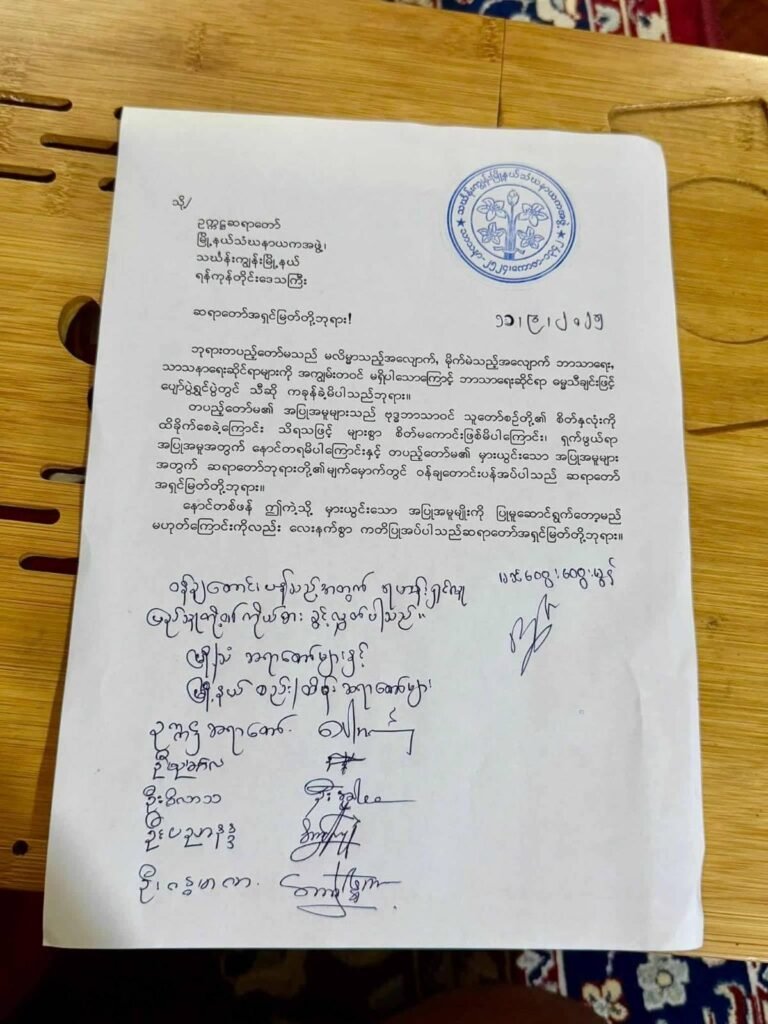 သို့/
ဥက္ကဋ္ဌဆရာတော်
မြို့နယ်သံဃနာယကအဖွဲ့၊
သင်္ဃန်းကျွန်းမြို့နယ်
ရန်ကုန်တိုင်းဒေသကြီး
သင်္ဃန်းကျွန်းမြို့နယ်သံဃနာယကအဖွဲ့
ဆရာတော်အရှင်မြတ်တို့ဘုရား!
ဘုရားတပည့်တော်မသည် မလိမ္မာသည့်အလျောက်, မိုက်မဲသည့်အလျောက် ဘာသာရေး,
သာသနာရေးဆိုင်ရာများကို အကျွမ်းတဝင် မရှိပါသောကြောင့် ဘာသာရေးဆိုင်ရာ ဓမ္မသီချင်းဖြင့်
ပျော်ပွဲရွှင်ပွဲတွင် သီဆို ကခုန်ခဲ့မိပါသည်ဘုရား။
တပည့်တော်မ၏ အပြုအမူများသည် ဗုဒ္ဓဘာသာဝင် သူတော်စဉ်တို့၏ စိတ်နှလုံးကို
ထိခိုက်စေခဲ့ကြောင်း သိရသဖြင့် များစွာ စိတ်မကောင်းဖြစ်မိပါကြောင်း၊ ရှက်ဖွယ်ရာ
အပြုအမူအတွက် နောင်တရမိပါကြောင်းနှင့် တပည့်တော်မ၏ မှားယွင်းသော အပြုအမူများ
အတွက် ဆရာတော်ဘုရားတို့၏မျက်မှောက်တွင် ဝန်ချတောင်းပန်အပ်ပါသည် ဆရာတော်
အရှင်မြတ်တို့ဘုရား။
နောင်တစ်ဖန် ဤကဲ့သို့ မှားယွင်းသော အပြုအမူမျိုးကို ပြုမူဆောင်ရွက်တော့မည်
မဟုတ်ကြောင်းကိုလည်း လေးနက်စွာ ကတိပြုအပ်ပါသည်ဆရာတော်အရှင်မြတ်တို့ဘုရား။
ဝန်ချတောင်းပန်သည့်အတွက် ရဟန်းရှင်လူ
ကိုယ်စား ခွင့်လွှတ်ပါသည်။
မြို့/သံ ဆရာတော်များနှင့်
မြို့နယ် ဆရာတော်များ
ဥက္ကဋ္ဌဆရာတော်
ဦးဝိလာသ
ဦးပညာနန္ဒ